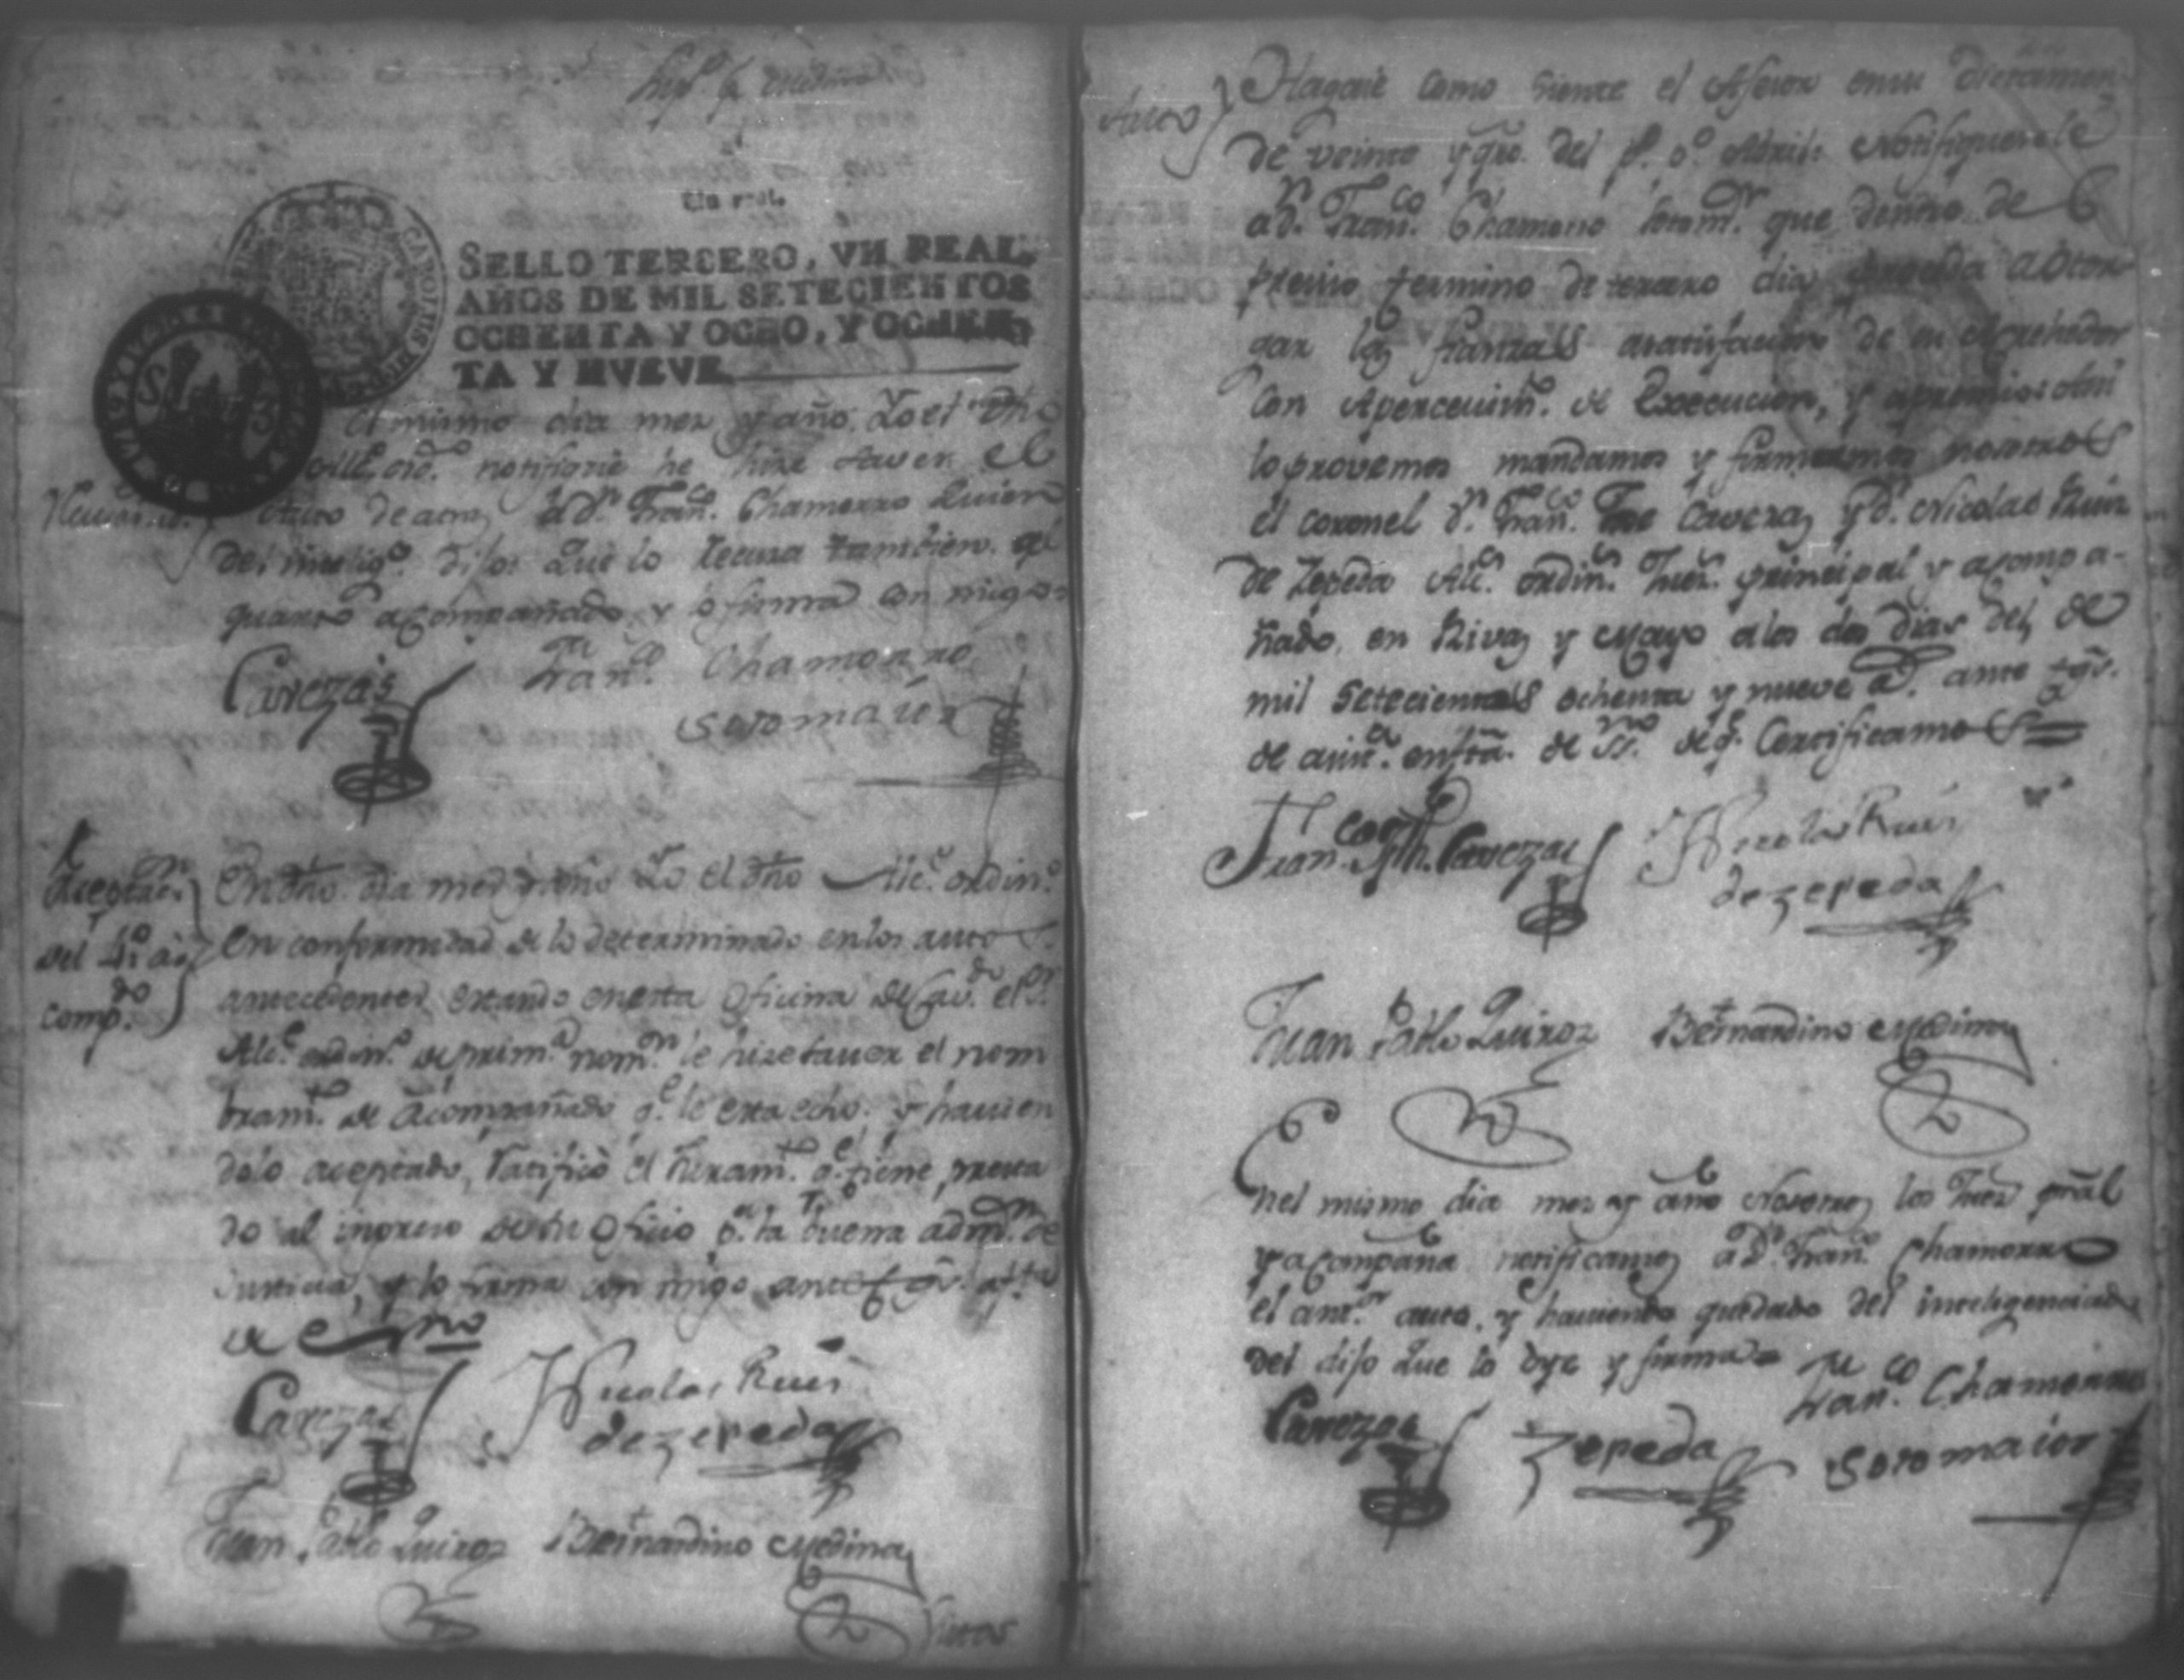 Un real.
SELLO TERCERO, VN REAL,
AÑOS DE MIL SETECIENTOS
OCHENTA Y OCHO, Y OCHEN
TA Y NVEVE
El mismo dia mes y año Yo el dho
Allẽ. orđ. notifiqué he hize saver el
Auto de atras â Dn. Frano. Chamorro Quien
del inteligdo. dijo: Que lo
quanto acompañado y lo firma con migo
Cavezas
Frano. Chamorro
Sotomaior
Aceptacn.
del Sr. a
compdo.
En dho. dia mes y año Yo el dho Alce. ordino.
en conformidad de lo determinado en los autos
antecedentes estando en esta Oficina de Cavdo. el Sr.
Alce. ordino. de prima. nomn. le hize saver el nom
bramto. de Acompañado qe. le esta echo; y havien
dolo aceptado, ratificó el Juramto. qe. tiene presta
do al ingreso de su Oficio pa. la buena admon. de
Justicia, y lo firma con migo ante tgos. afta.
de Esno
Cavezas
Nicolas Ruis
de zepeda
Juan Pablo Quiroz
Bernardino Medina
Autos
Auto
Hagase como siente el Asesor en su Dictamen
de veinte y qro. del pº. pº. Abril: Notifiquesele
a Dn. Franco. Chamorro Sotomr. que dentro de el
preciso termino de tercero dia proceda a Otor
gar las fianzas a satisfacion de su
Con Apercevimto. de Execucion, y apremio: Assi
lo provemos mandamos y firmamos nosotros
el coronel Dn. Franco. Jse Cavezas y Dn. Nicolas Ruiz
de Zepeda Alcs. ordins. Juez principal y acompa-
ñado, en Rivas y Mayo a los dos Dias del de
mil Setecientos ochenta y nueve as. ante tgos.
de asisa. en fta. de Sno. de q. Certificamos
Franco. Jph. Cavezas
Nicolas Ruis
de zepeda
Juan Pablo Quiroz
Bernardino Medina
Enel mismo dia mes y año Nosotros los Juez prãl
y acompaña notificamos a Dn. Frano. Chamorro
el antor. auto, y haviendo quedado del inteligenciado
del dijo Que lo oye y firma
Cavezas
Zepeda
Frano. Chamorro
Sotomaior